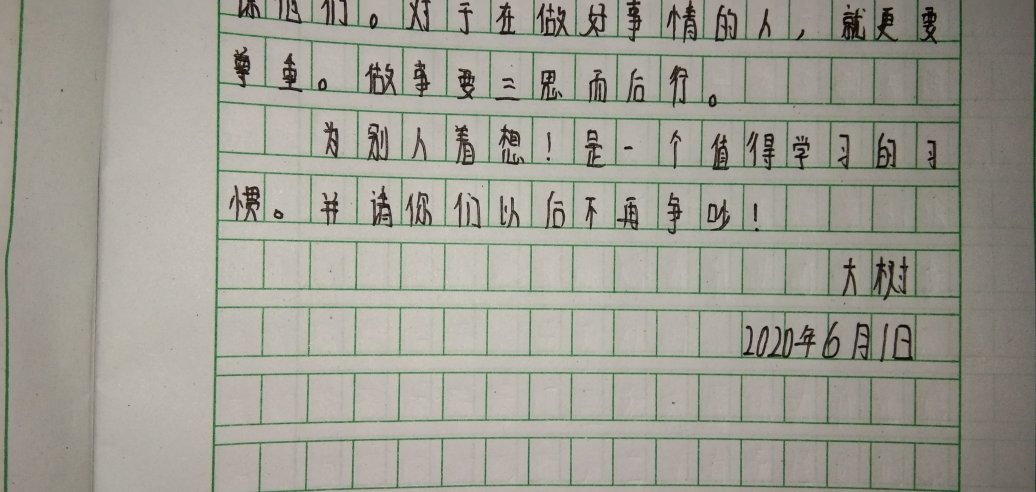 你他们。对于在做好事情的人，就更要
尊重。做事要三思而后行。
为别人着想！是一个值得学习的习
惯。并请你们以后不再争吵！
大树
2020年6月1日